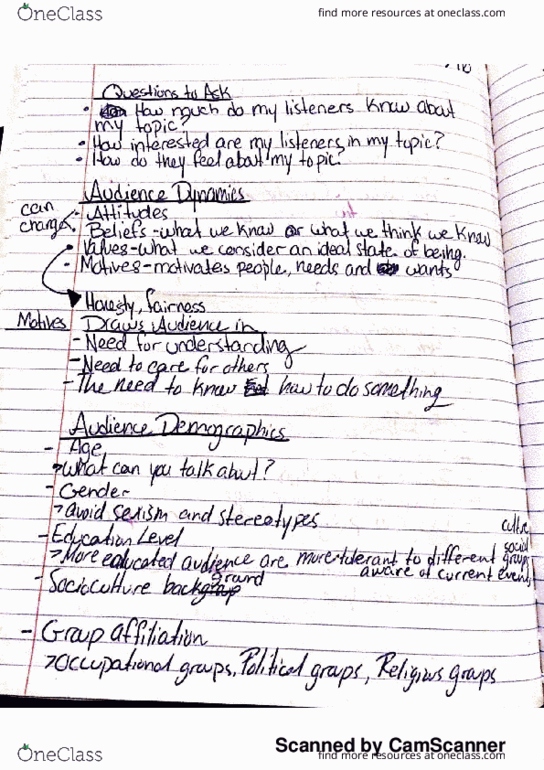 OneClass
find more resources at oneclass.com
Questions to Ask
• How much do my listeners know about
my topic?
• How interested are my listeners in my topic?
• How do they feel about my topic.
Audience Dynamics
can
change
- Attitudes
Beliefs - what we know or what we think we know
• Values - what we consider an ideal state of being.
- Motives - motivates people, needs and wants
Honesty, fairness
Motives Draws Audience in
- Need for understanding
- Need to care for others
- The need to know how to do something
Audience Demographics
- Age
→ What can you talk about?
- Gender
→ avoid sexism and stereotypes
- Education Level
→ More educated audience are more tolerant to different social groups
aware of current events
- Socioculture background
- Group affiliation
→ Occupational groups, Political groups, Religious groups
Scanned by CamScanner
OneClass
find more resources at oneclass.com